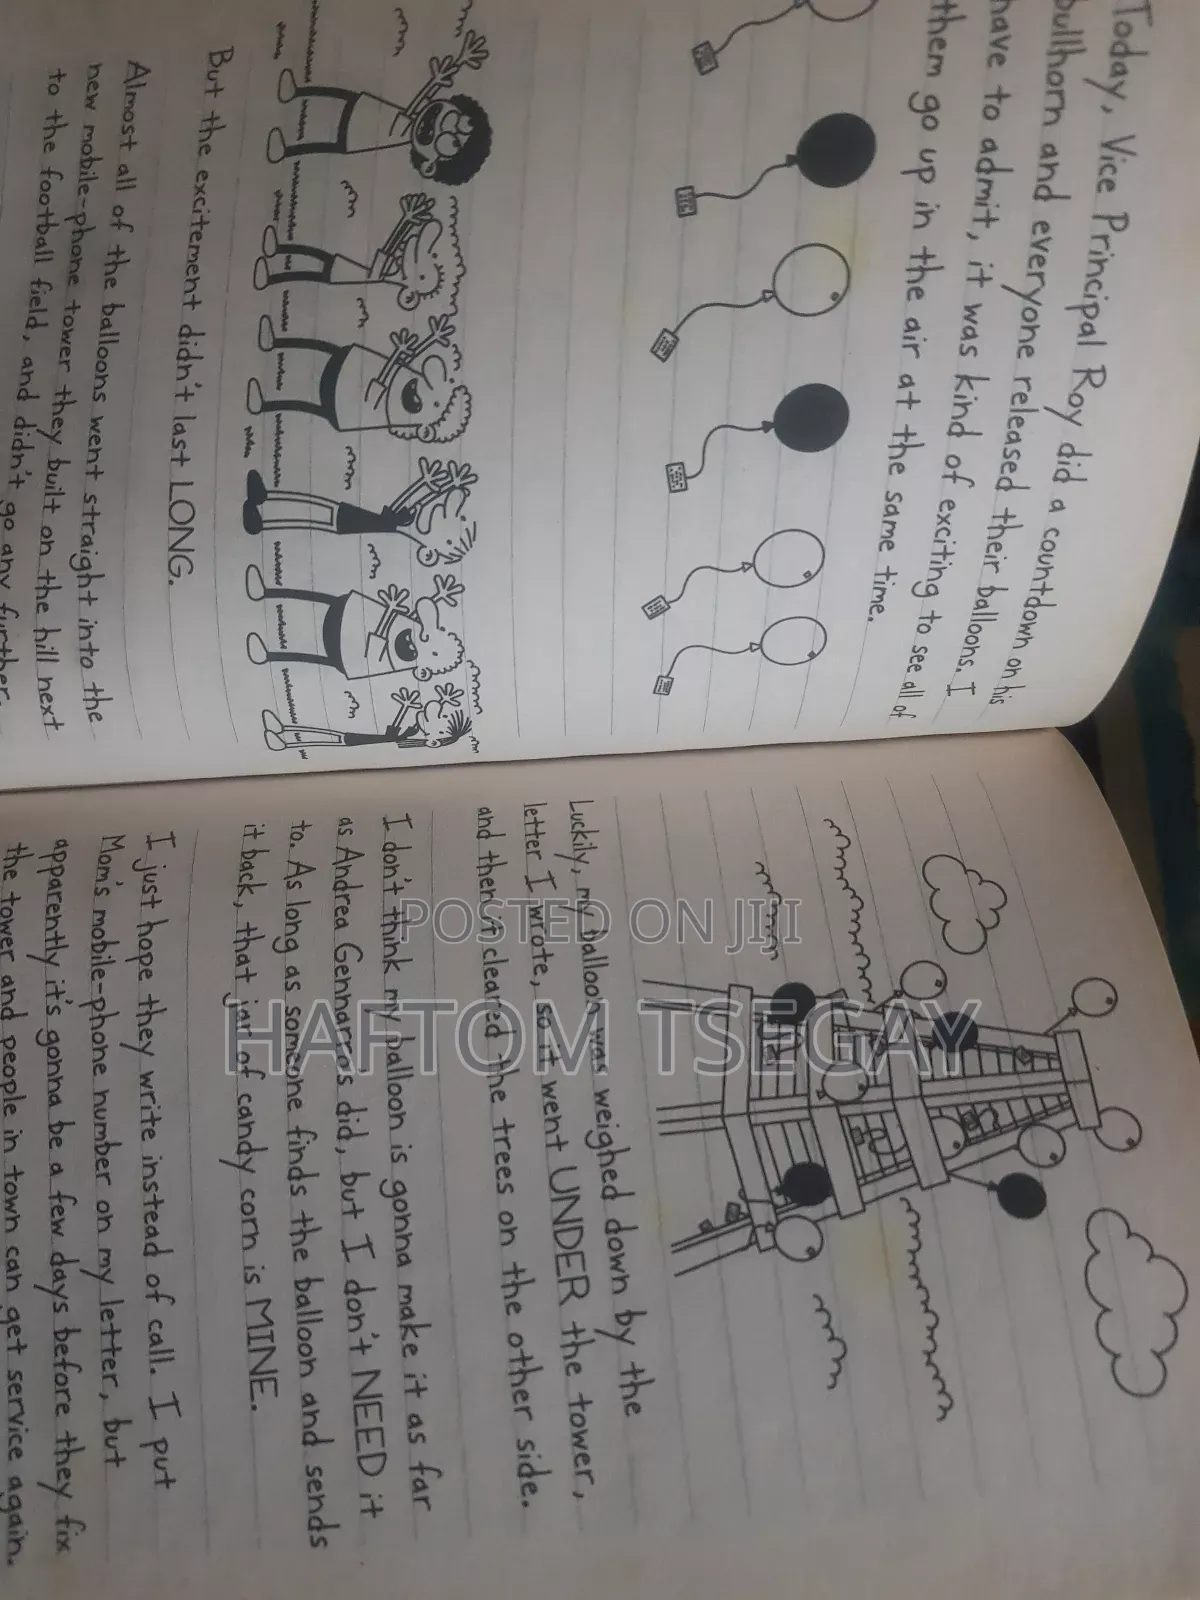 Today, Vice Principal Roy did a countdown on his
bullhorn and everyone released their balloons. I
have to admit, it was kind of exciting to see all of
them go up in the air at the same time.
But the excitement didn't last LONG.
Almost all of the balloons went straight into the
new mobile-phone tower they built on the hill next
to the football field, and didn't go any further.
Luckily, my balloon was weighed down by the
letter I wrote, so it went UNDER the tower,
and then it cleared the trees on the other side.
I don't think my balloon is gonna make it as far
as Andrea Gennarros did, but I don't NEED it
to. As long as someone finds the balloon and sends
it back, that jar of candy corn is MINE.
I just hope they write instead of call. I put
Mom's mobile-phone number on my letter, but
apparently it's gonna be a few days before they fix
the tower and people in town can get service again.
POSTED ON JIJI
HAFTOM TSEGAY